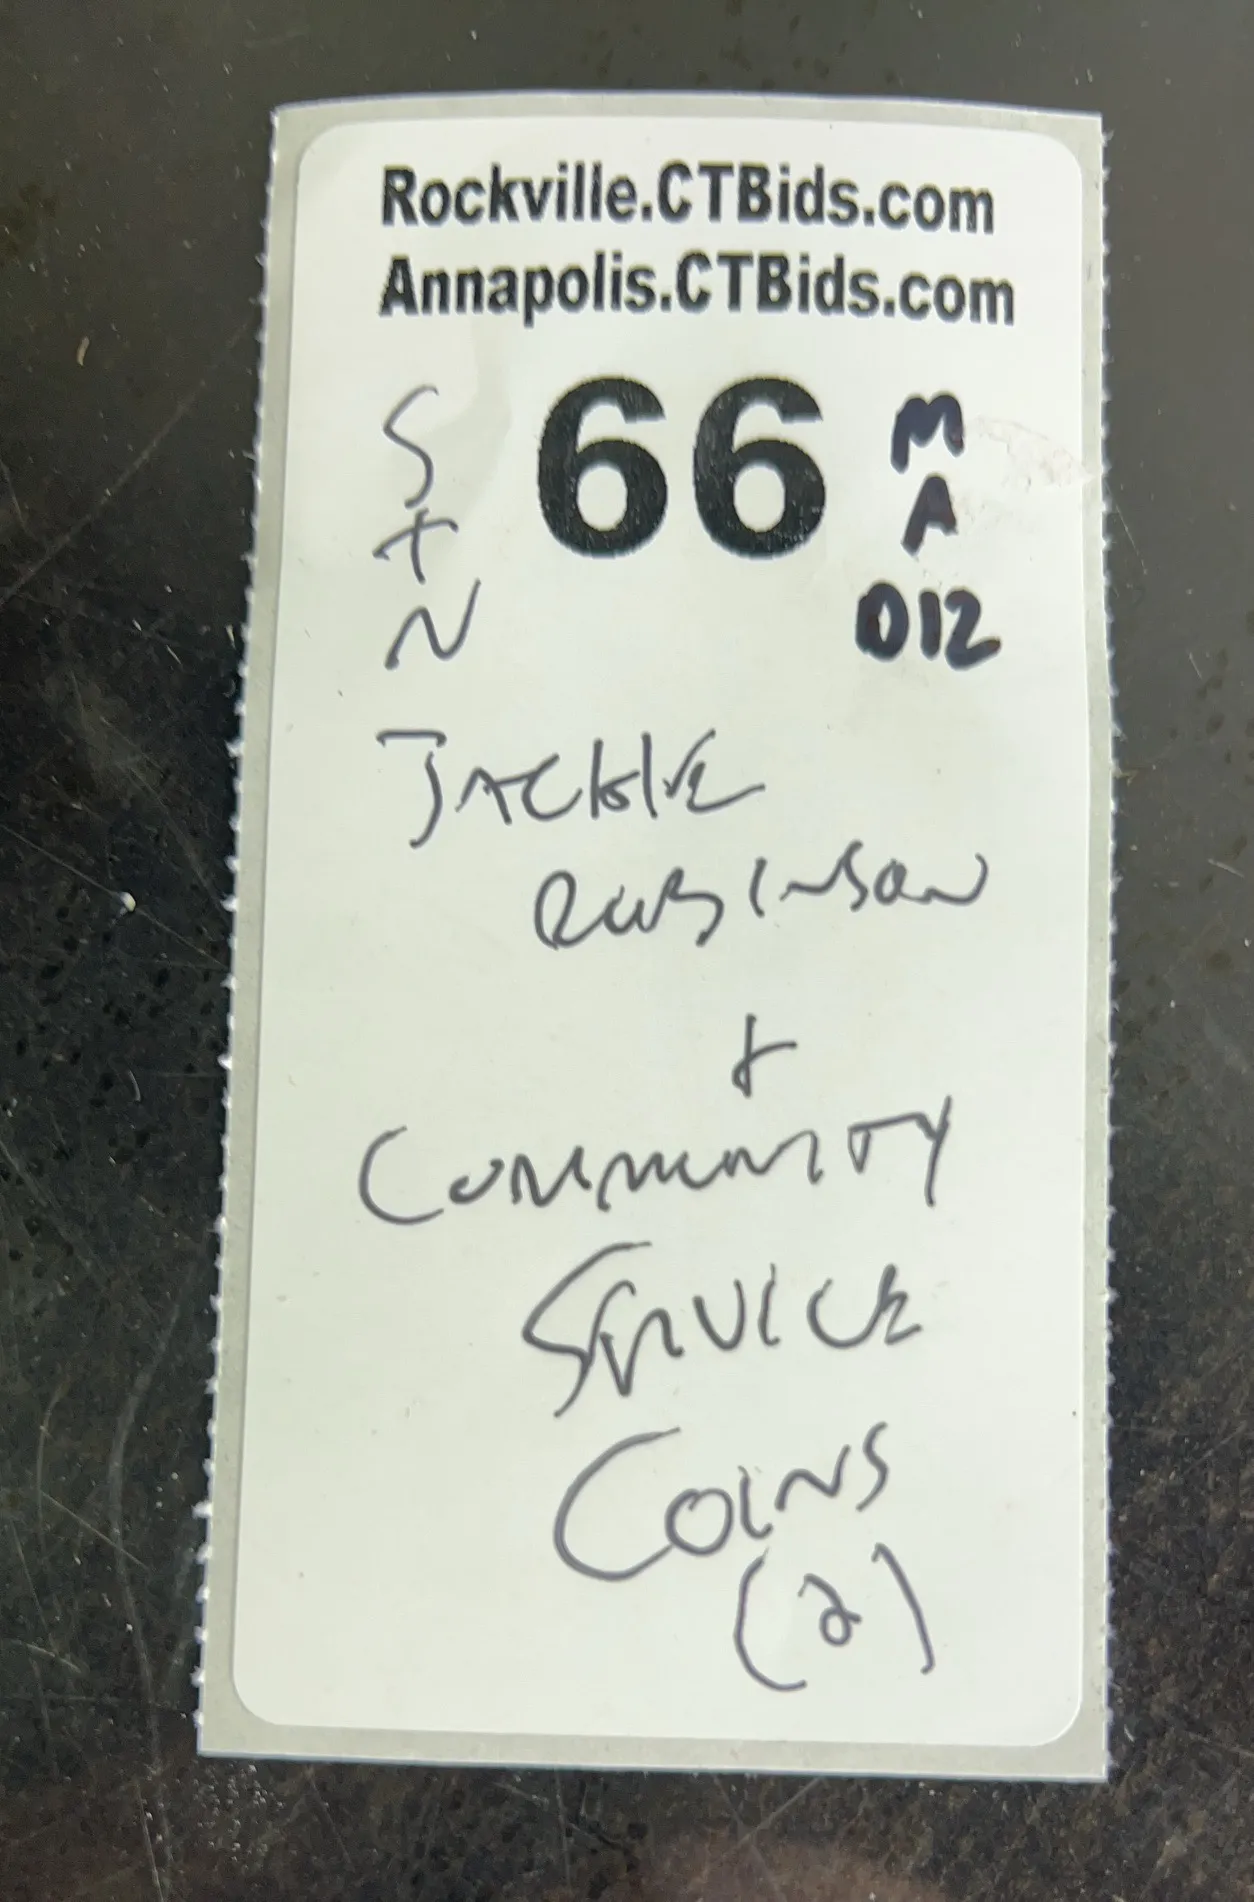 Rockville.CTBids.com
Annapolis.CTBids.com
S
+
N
66
M
A
012
JACKIE
ROBINSON
+
COMMUNITY
SERVICE
COINS
(2)